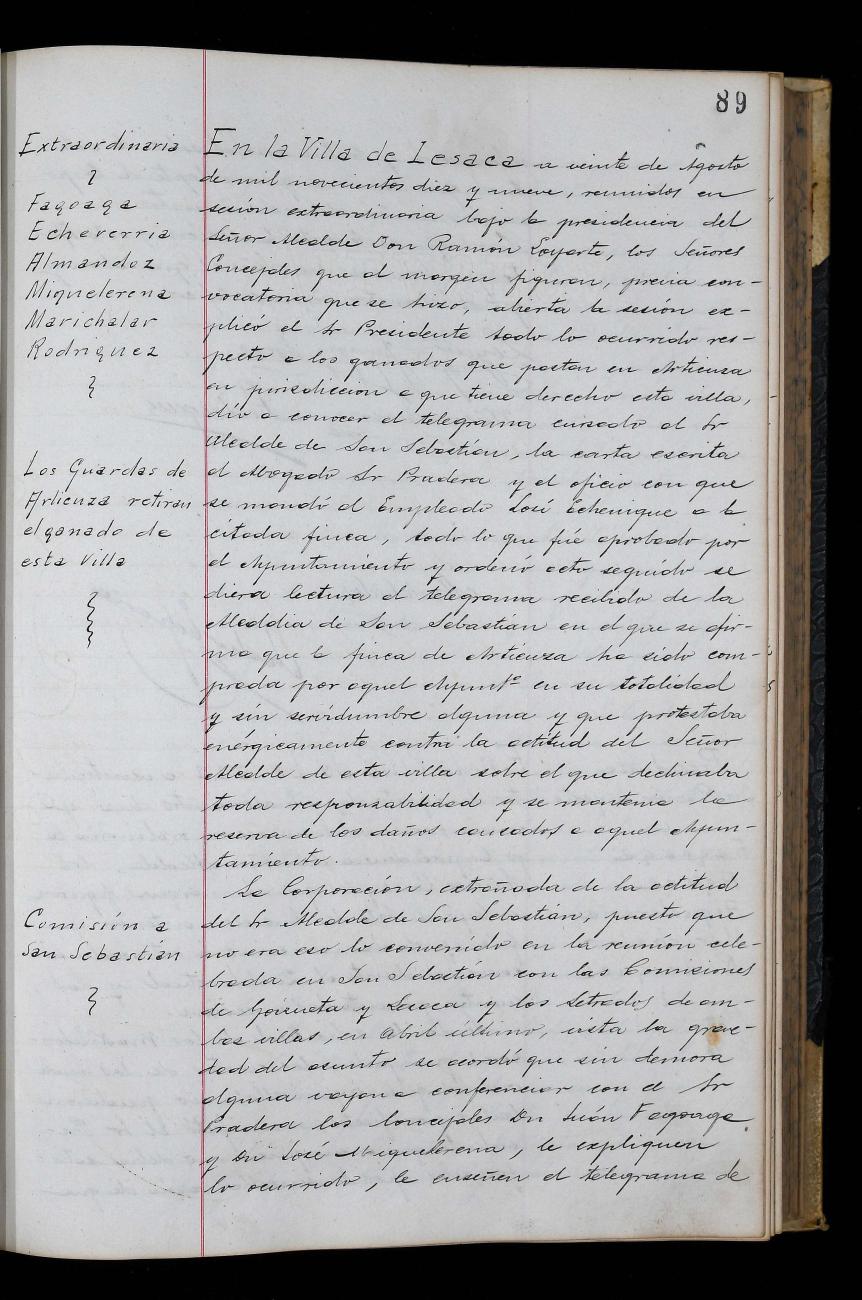 89
Extraordinaria
Fagoaga
Echeverria
Almandoz
Miquelerena
Marichalar
Rodriguez
Los Guardas de
Articuza retiran
el ganado de
esta Villa
Comisión a
San Sebastián
En la Villa de Lesaca a veinte de Agosto
de mil novecientos diez y nueve, reunidos en
sesión extraordinaria bajo la presidencia del
Señor Alcalde Don Ramón Loyarte, los Señores
Concejales que al margen figuran, previa con-
vocatoria que se hizo, abierta la sesión ex-
plicó el Sr Presidente todo lo ocurrido res-
pecto a los ganados que pastan en Articuza
en jurisdiccion a que tiene derecho esta villa,
dió a conocer el telegrama cursado al Sr
Alcalde de San Sebastían, la carta escrita
al Abogado Sr Pradera y el oficio con que
se mandó al Empleado José Echenique a la
citada finca, todo lo que fué aprobado por
el Ayuntamiento y ordenó acto seguido se
diera lectura al telegrama recibido de la
Alcaldia de San Sebastian en el que se afir-
ma que la finca de Articuza ha sido com-
prada por aquel Ayuntº en su totalidad
y sin servidumbre alguna y que protestaba
enérgicamente contra la actitud del Señor
Alcalde de esta villa sobre el que declinaba
toda responsabilidad y se mantenia la
reserva de los daños causados a aquel Ayun-
tamiento.
La Corporación, extrañada de la actitud
del Sr Alcalde de San Sebastián, puesto que
no era eso lo convenido en la reunión cele-
brada en San Sebastián con las Comisiones
de Goizueta y Lesaca y los Letrados de am-
bas villas, en Abril último, vista la grave-
dad del asunto se acordó que sin demora
alguna vayan a conferenciar con el Sr
Pradera los Concejales Dn Juán Fagoaga
y Dn José Miquelerena, le expliquen
lo ocurrido, le enseñen el telegrama de